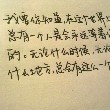 我要你知道，在这个世界上
总有一个人是会永远等着你
的。无论什么时候，无论
什么地方，总会有这么一个